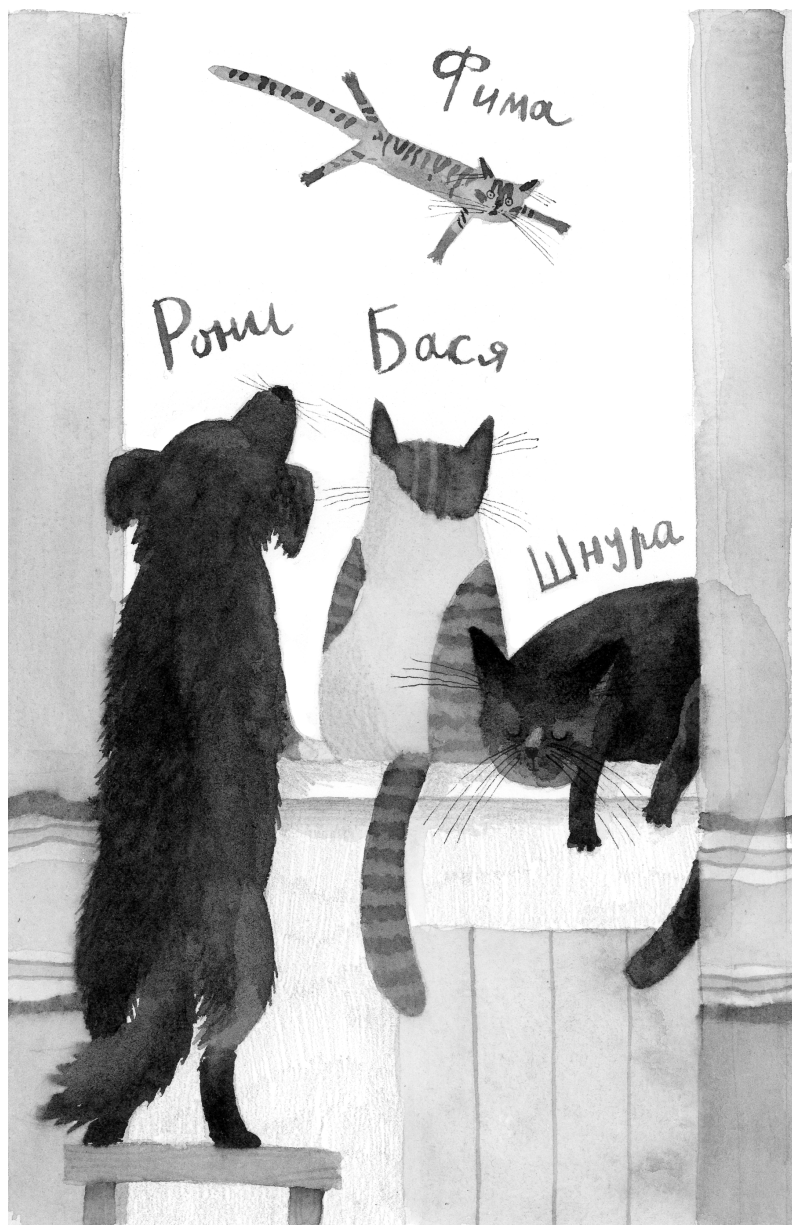 Фима
Рони
Бася
Шнура